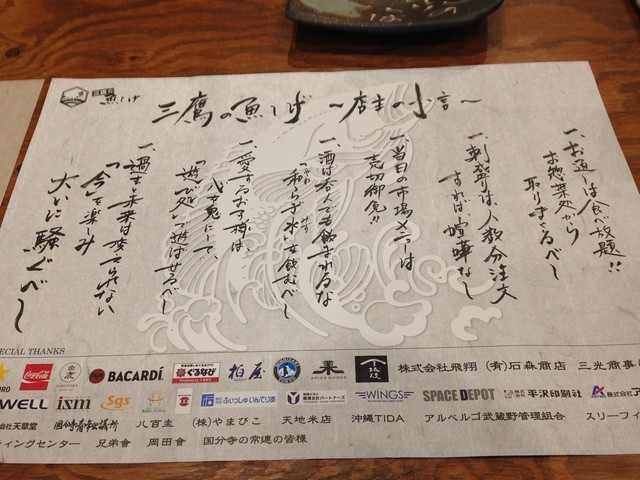 三鷹の魚しげ 〜店主の小言〜
一、お通しは食べ放題!!
お惣菜処から
取りすぎるべし
一、刺盛りは人数分注文
すれば喧嘩なし
一、当日の市場メニューは
売切御免!!
一、酒は呑んでも飲まれるな
「和らぎ水」を飲むべし
一、愛するお子様は、
「遊び処」で遊ばせるべし
一、過去、未来は変えられない
「今」を楽しみ
大いに騒ぐべし
SPECIAL THANKS
Coca-Cola
BACARDI
ぐるなび
柏屋
株式会社飛翔
(有)石森商店
三光商事
WELL
ism
Sgs
ふぃっしゅいんてりあ
WINGS
SPACE DEPOT
平沢印刷社
天章堂
国分寺青年会議所
八百圭
(株)やまびこ
天地米店
沖縄TIDA
アルベルゴ武蔵野管理組合
スリーフィ
ティングセンター
兄弟會
岡田會
国分寺の常連の皆様